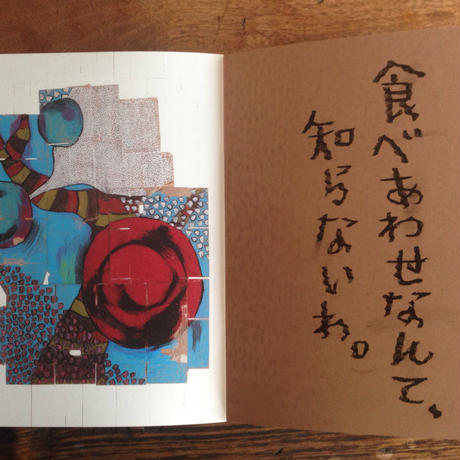 食べあわせなんて、
知らないわ。